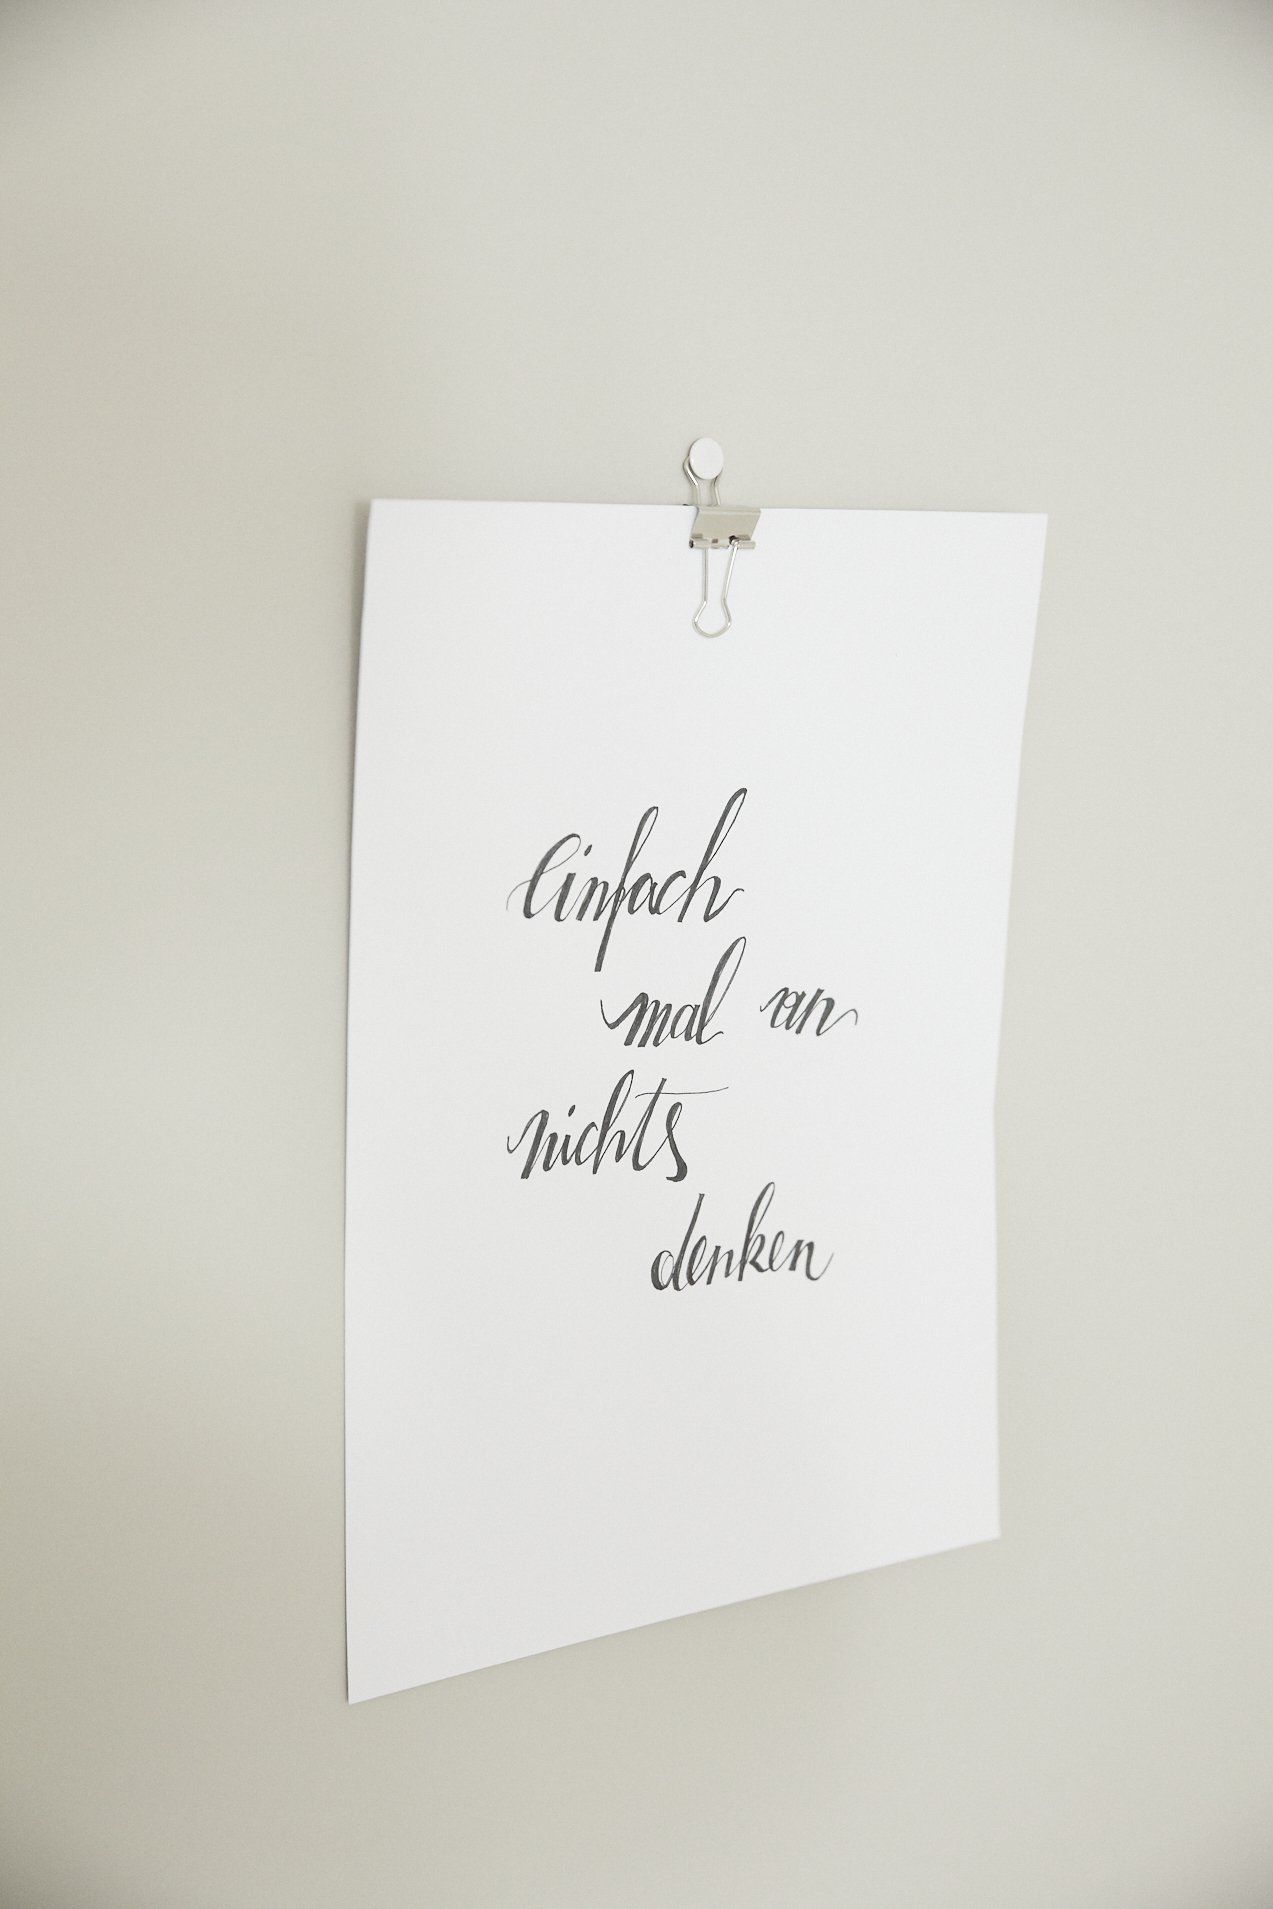 einfach
mal an
nichts
denken